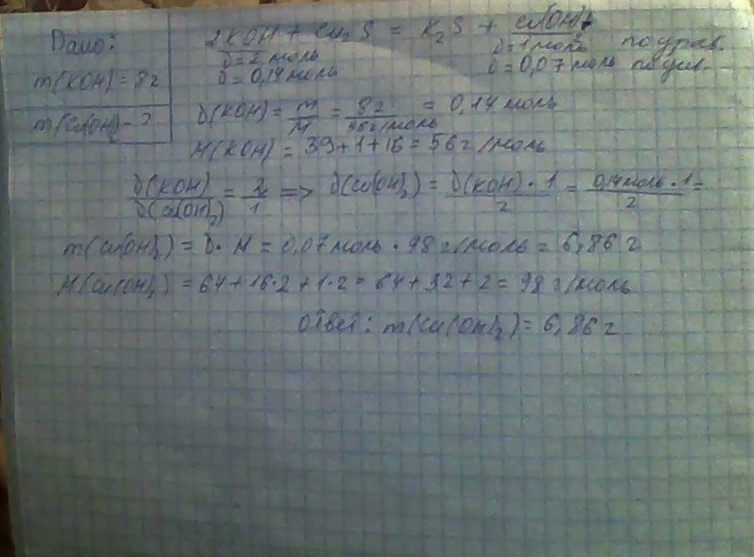 Дано:
2KOH + Cu₂S = K₂S + Cu(OH)₂
υ = 2 моль
υ = 1 моль по урав.
υ = 0,14 моль
υ = 0,07 моль по усл.
m(KOH) = 8г
m(Cu(OH)₂ - ?
υ(KOH) = m/M = 8г/56г/моль = 0,14 моль
M(KOH) = 39+1+16 = 56г/моль
υ(KOH)/υ(Cu(OH)₂) = 2/1 => υ(Cu(OH)₂) = υ(KOH)·1/2 = 0,14моль·1/2 =
m(Cu(OH)₂) = υ·M = 0,07 моль · 98 г/моль = 6,86 г
M(Cu(OH)₂) = 64+16·2+1·2 = 64+32+2 = 98 г/моль
Ответ: m(Cu(OH)₂) = 6,86 г